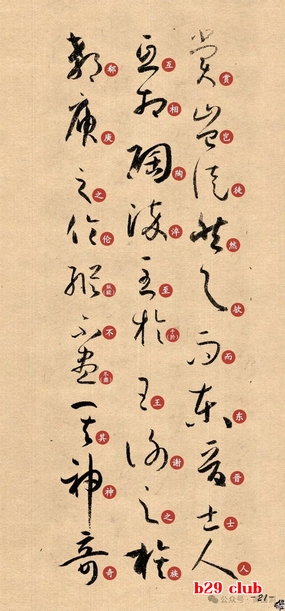 赏岂徒然欤而东晋士人
互相陶淬至於王谢之族
郗庾之伦纵不尽其神奇
公众号
-21-
b29 club